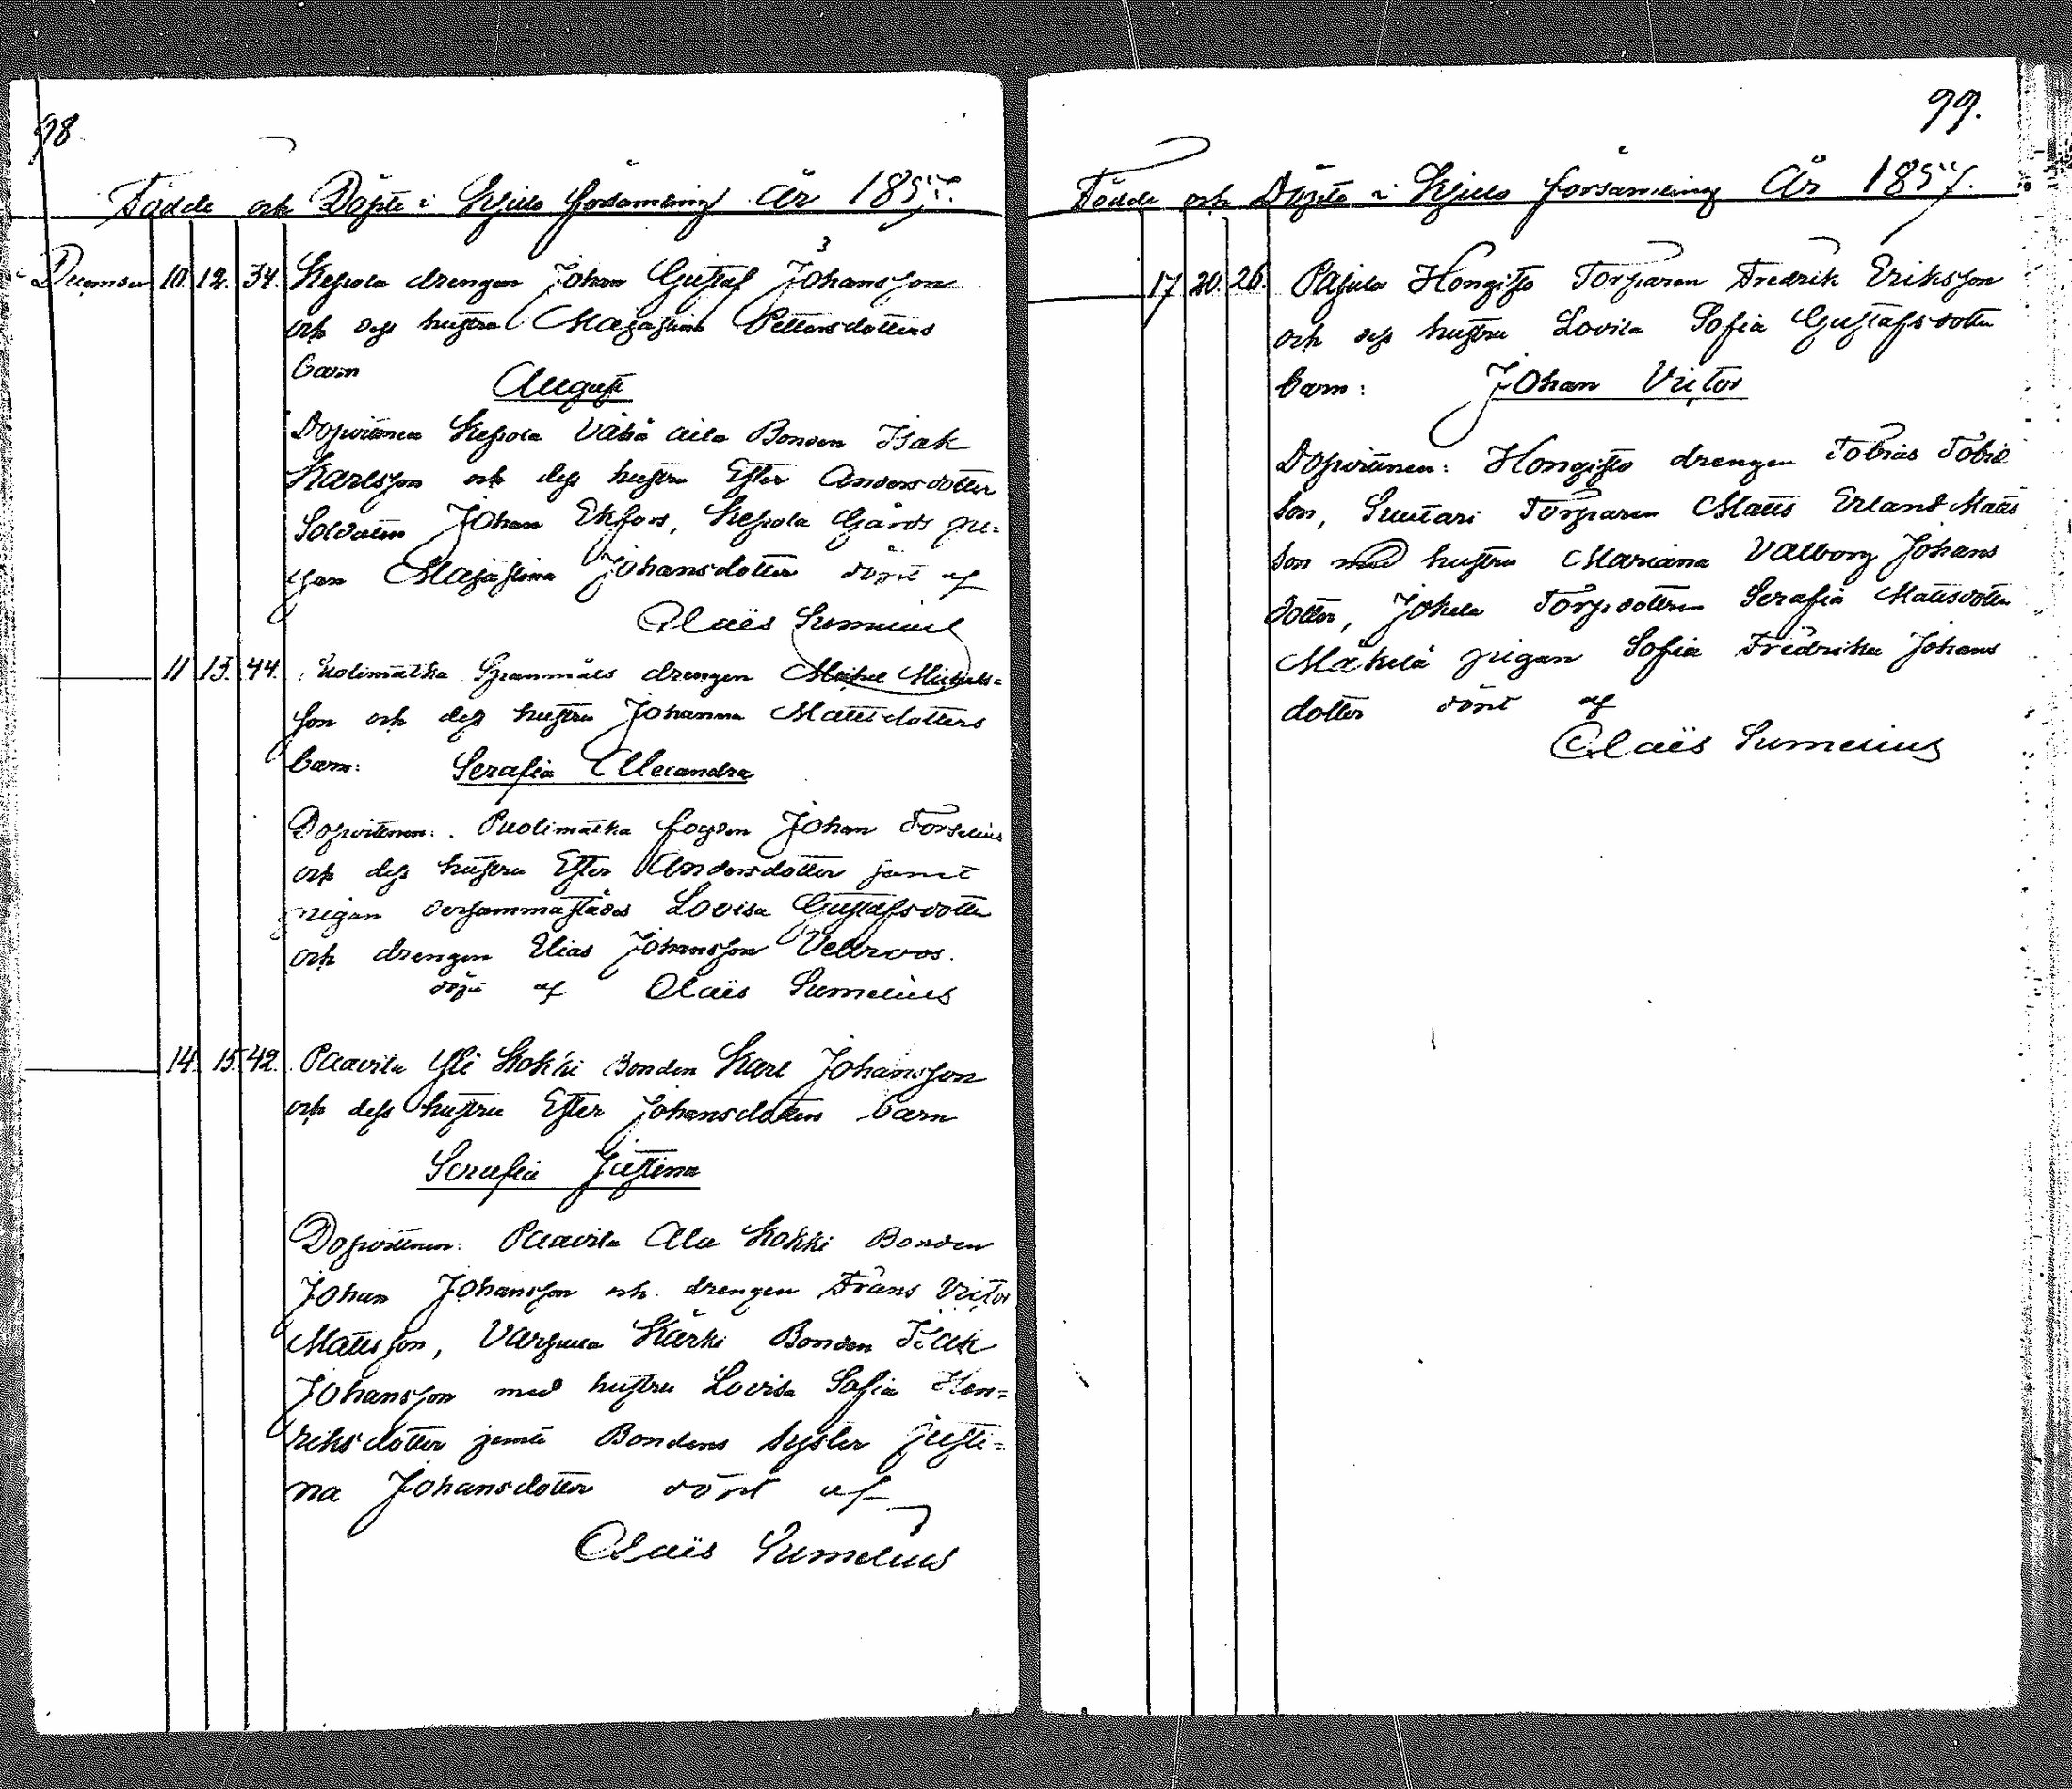 98.
Födde och Döpte i Kjulo församling år 1857.
December 10. 12. 34. Kepola drengen Johan Gustaf Johansson
och dess hustru Majastina Pettersdotters
barn August
Dopvittnen Kepola Vähä Aila Bonden Isak
Karlsson och dess hustru Ester Andersdotter
Soldaten Johan Ekfors, Kepola Gårds pi=
gan Majastina Johansdotter döpt af
Claës Sumelius
11 13. 44. Puolimatka Spanmåls drengen Mickel Mickels=
son och dess hustru Johanna Mattsdotters
barn: Serafia Alexandra
Dopvittnen: Puolimatka fogden Johan Forselius
och dess hustru Ester Andersdotter samt
pigan dersammastädes Lovisa Gustafsdotter
och drengen Elias Johansson Vellroos.
döpt af Claës Sumelius
14. 15. 42. Paavila Yli Kokki Bonden Karl Johansson
och dess hustru Ester Johansdotters barn
Serafia Justina
Dopvittnen: Paavila Ala Kokki Bonden
Johan Johansson och drengen Frans Victor
Matsson, Kärki Bonden Isak
Johansson med hustru Lovisa Sofia Hen=
riksdotter jemte Bondens syster Justi=
na Johansdotter döpt af
Claës Sumelius
99.
Födde och Döpte i Kjulo församling år 1857.
17 20. 26. Pajula Hongisto Torparen Fredrik Eriksson
och dess hustru Lovisa Sofia Gustafsdotter
barn: Johan Victor
Dopvittnen: Hongisto drengen Tobias Tobia
son, Suutari Torparen Matts Erland Matts
son med hustru Mariana Valborg Johans
dotter, Jokela Torpdottren Serafia Matsdotter
Mäkelä pigan Sofia Fredrika Johans
dotter döpt af
Claës Sumelius